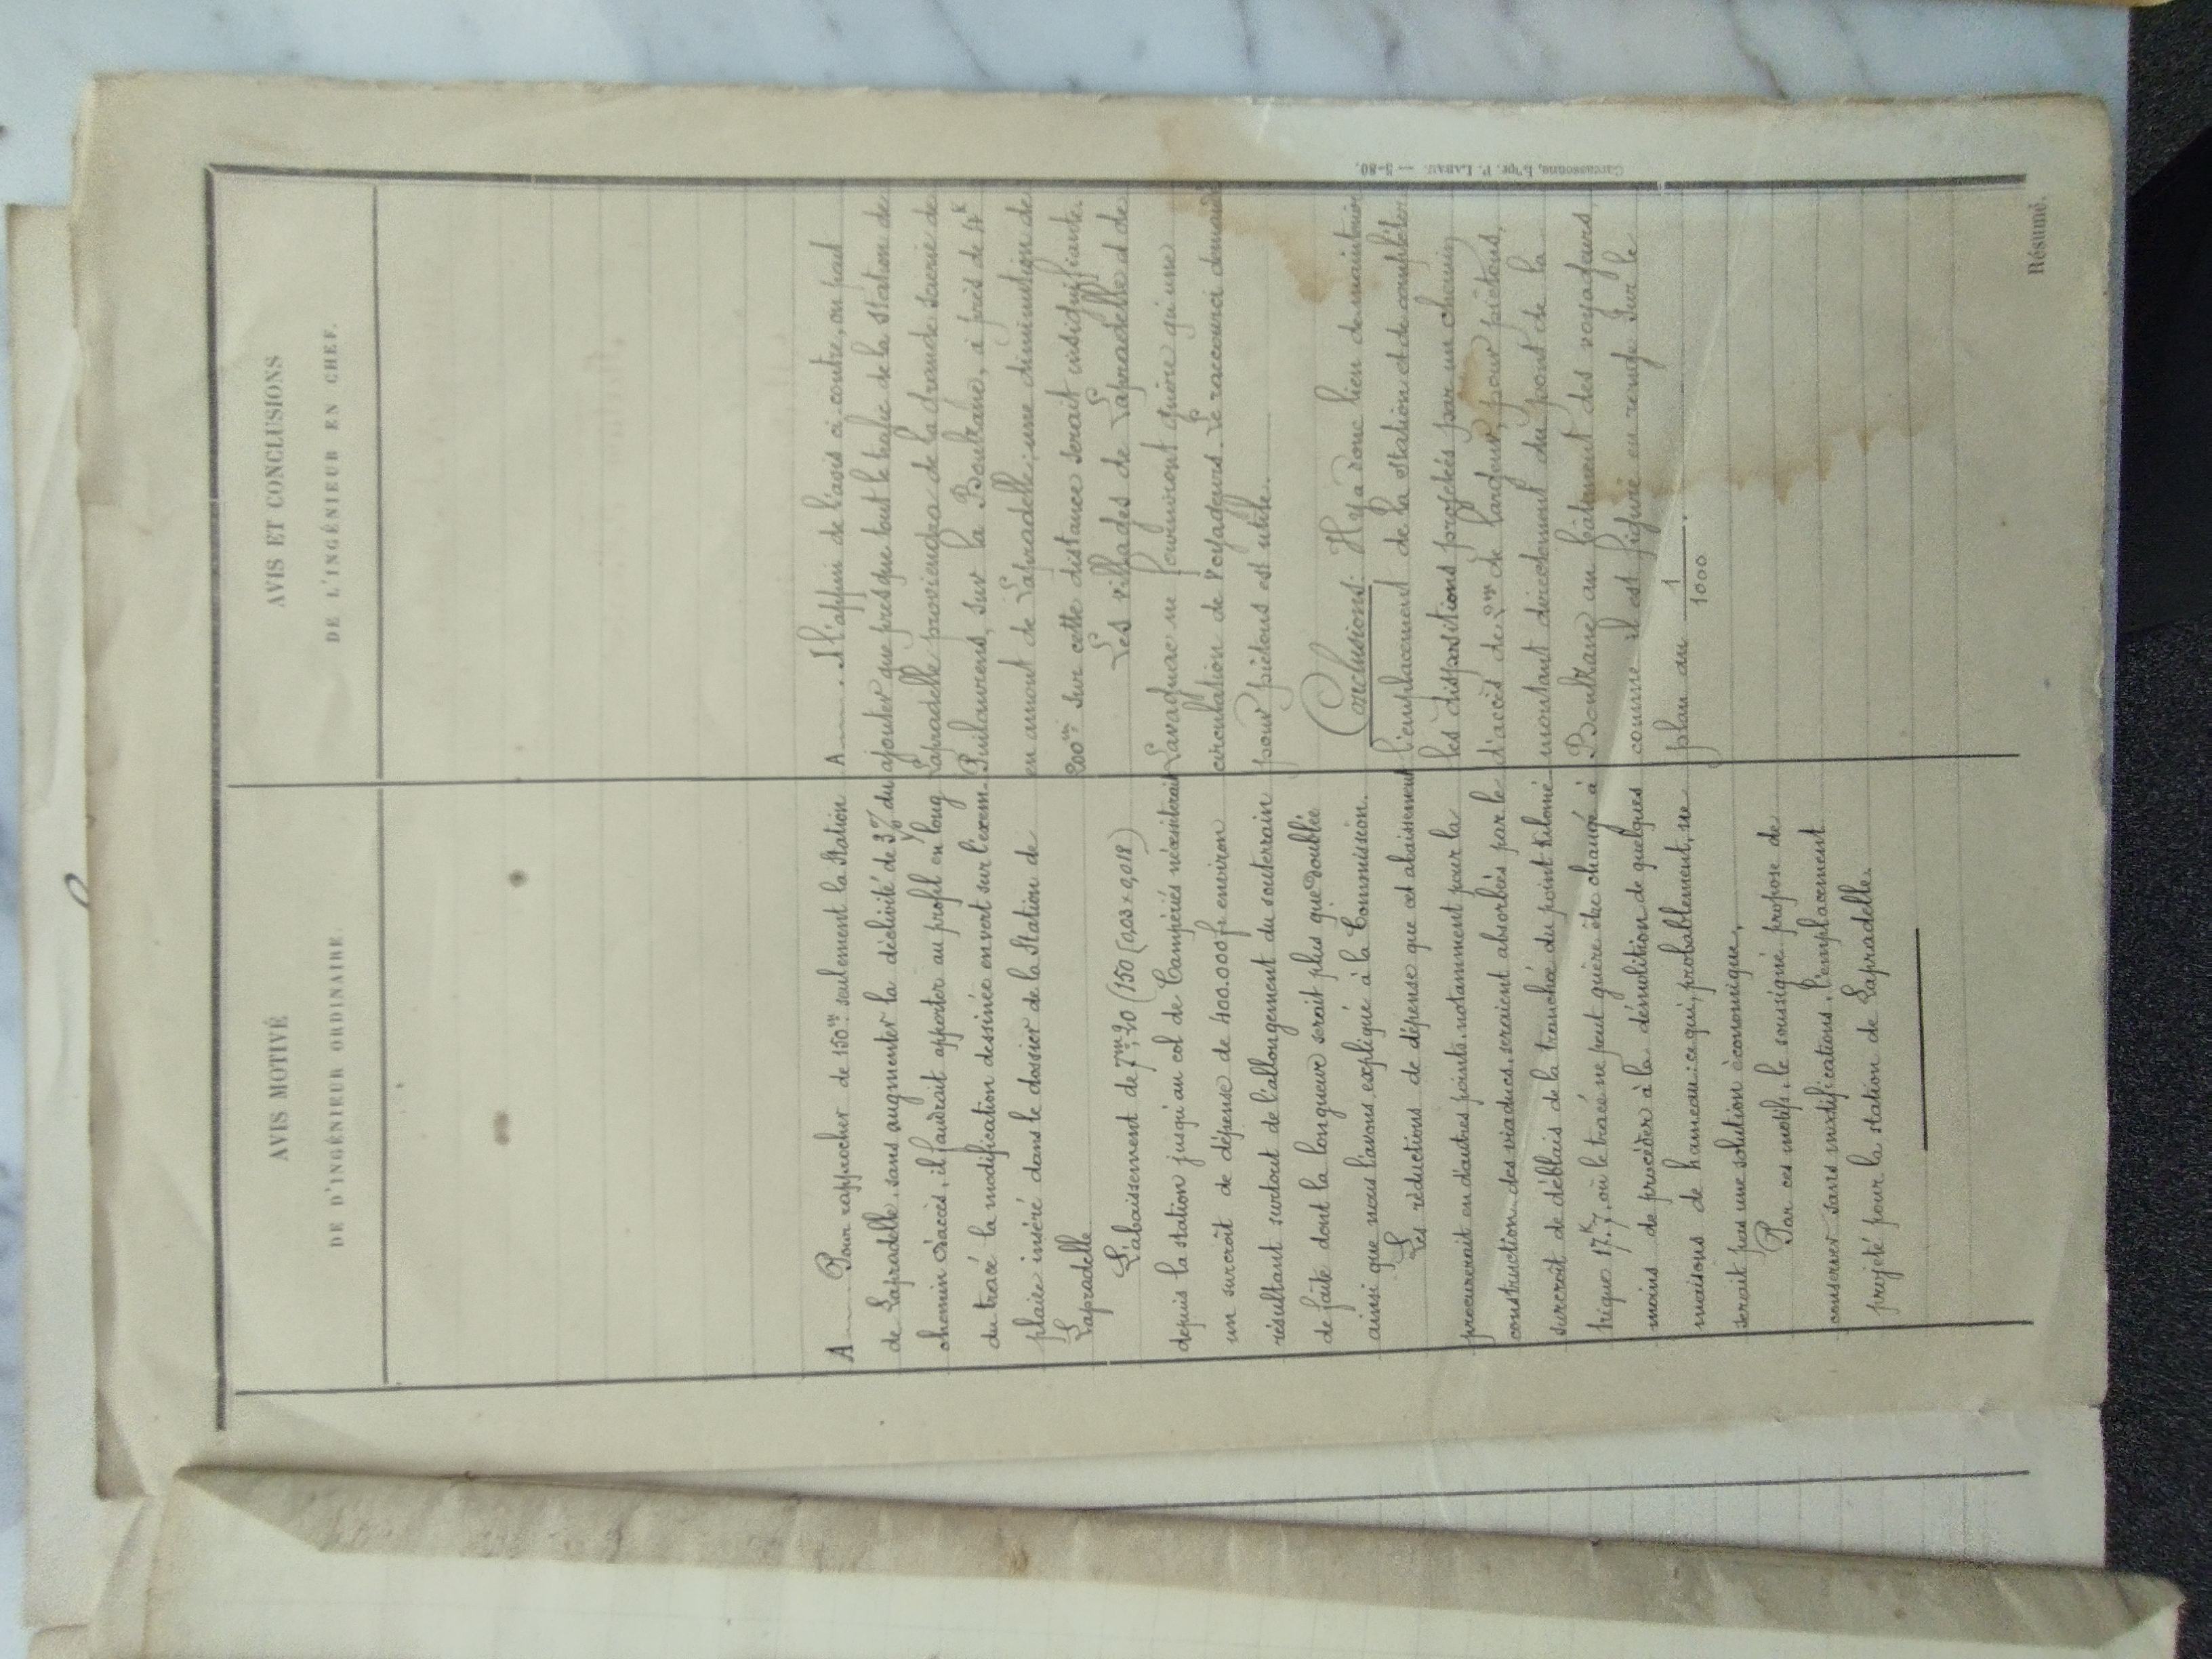 AVIS MOTIVÉ
DE D'INGÉNIEUR ORDINAIRE.
A Pour rapprocher de 150m seulement la Station
de Lapradelle, sans augmenter la déclivité de 3% du
chemin d'accès, il faudrait apporter au profil en long
du tracé la modification dessinée en vert sur l'exem-
plaire inséré dans le dossier de la Station de
Lapradelle.
L'abaissement de 7m,20 (150 [0,03 + 0,018)
depuis la station jusqu'au col de Campériés nécessiterait
un surcroît de dépense de 400.000 fr environ
résultant surtout de l'allongement du souterrain
de faîte dont la longueur serait plus que doublée
ainsi que nous l'avons expliqué à la Commission.
Les réductions de dépense que cet abaissement
procurerait en d'autres points, notamment pour la
construction des viaducs, seraient absorbées par le
surcroît de déblais de la tranchée du point kilomé-
trique 17K,7, où le tracé ne peut guère être changé à
moins de procéder à la démolition de quelques
maisons de hameau: ce qui, probablement, ne
serait pas une solution économique.
Par ces motifs, le soussigné propose de
conserver sans modifications, l'emplacement
projeté pour la station de Lapradelle.
AVIS ET CONCLUSIONS
DE L'INGÉNIEUR EN CHEF.
A . A l'appui de l'avis ci-contre, on peut
ajouter que presque tout le trafic de la station de
Lapradelle proviendra de la grande scierie de
Puilaurens, sur la Boulzane, à près de 4K
en amont de Lapradelle; une diminution de
200m sur cette distance serait insignifiante.
Les villages de Lapradelle et de
Lavagnac ne fourniront guère qu'une
circulation de voyageurs. Le raccourci demandé
pour piétons est utile.
Conclusions: Il y a donc lieu de maintenir
l'emplacement de la station et de compléter
les dispositions projetés par un chemin
d'accès de 2m de largeur, pour piétons,
montant directement du pont de la
Boulzane au bâtiment des voyageurs
comme il est figuré en rouge sur le
plan au 1/1000.
Carcassonne, Impr. P. LABAU. — 5-80.
Résumé.